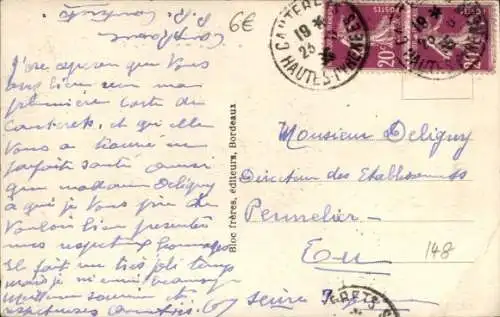 6€
CAUTERETS
19
23
HAUTES-PYRÉNÉES
POSTES
20c
J'ose espérer que Vous
avez bien reçu ma
première carte de
Cauterets, et qu'elle
Vous a trouvé en
parfaite santé ainsi
que madame Deligny
à qui je Vous prie de
Vouloir bien présenter
mes respectueux hommages
Il fait un très joli temps
mais je m'ennuie beaucoup
Meilleur souvenir et
respectueuses amitiés.
Bloc frères, éditeurs, Bordeaux
Monsieur Deligny
Directeur des Etablissements
Pennelier
Eu
148
Seine Inf